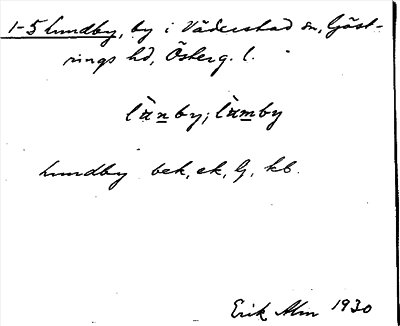 1-5 Lundby, by i Väderstad sn, Göst-
rings hd, Österg. l.
lànby; làmby
Lundby bek, ek, G, kb.
Erik Alm 1930